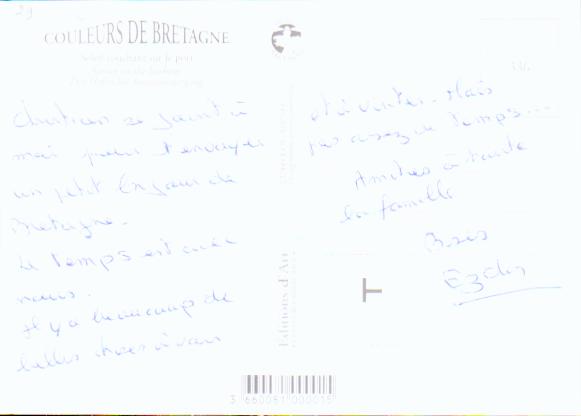 29
COULEURS DE BRETAGNE
Soleil couchant sur le port
Christian se joint à
moi pour t'envoyer
un petit bonjour de
Bretagne.
Le temps est avec
nous.
Il y a beaucoup de
belles choses à voir
et à visiter. Mais
pas assez de temps...
Amitiés à toute
la famille
Bises
Editions d'Art
3 660081 000015